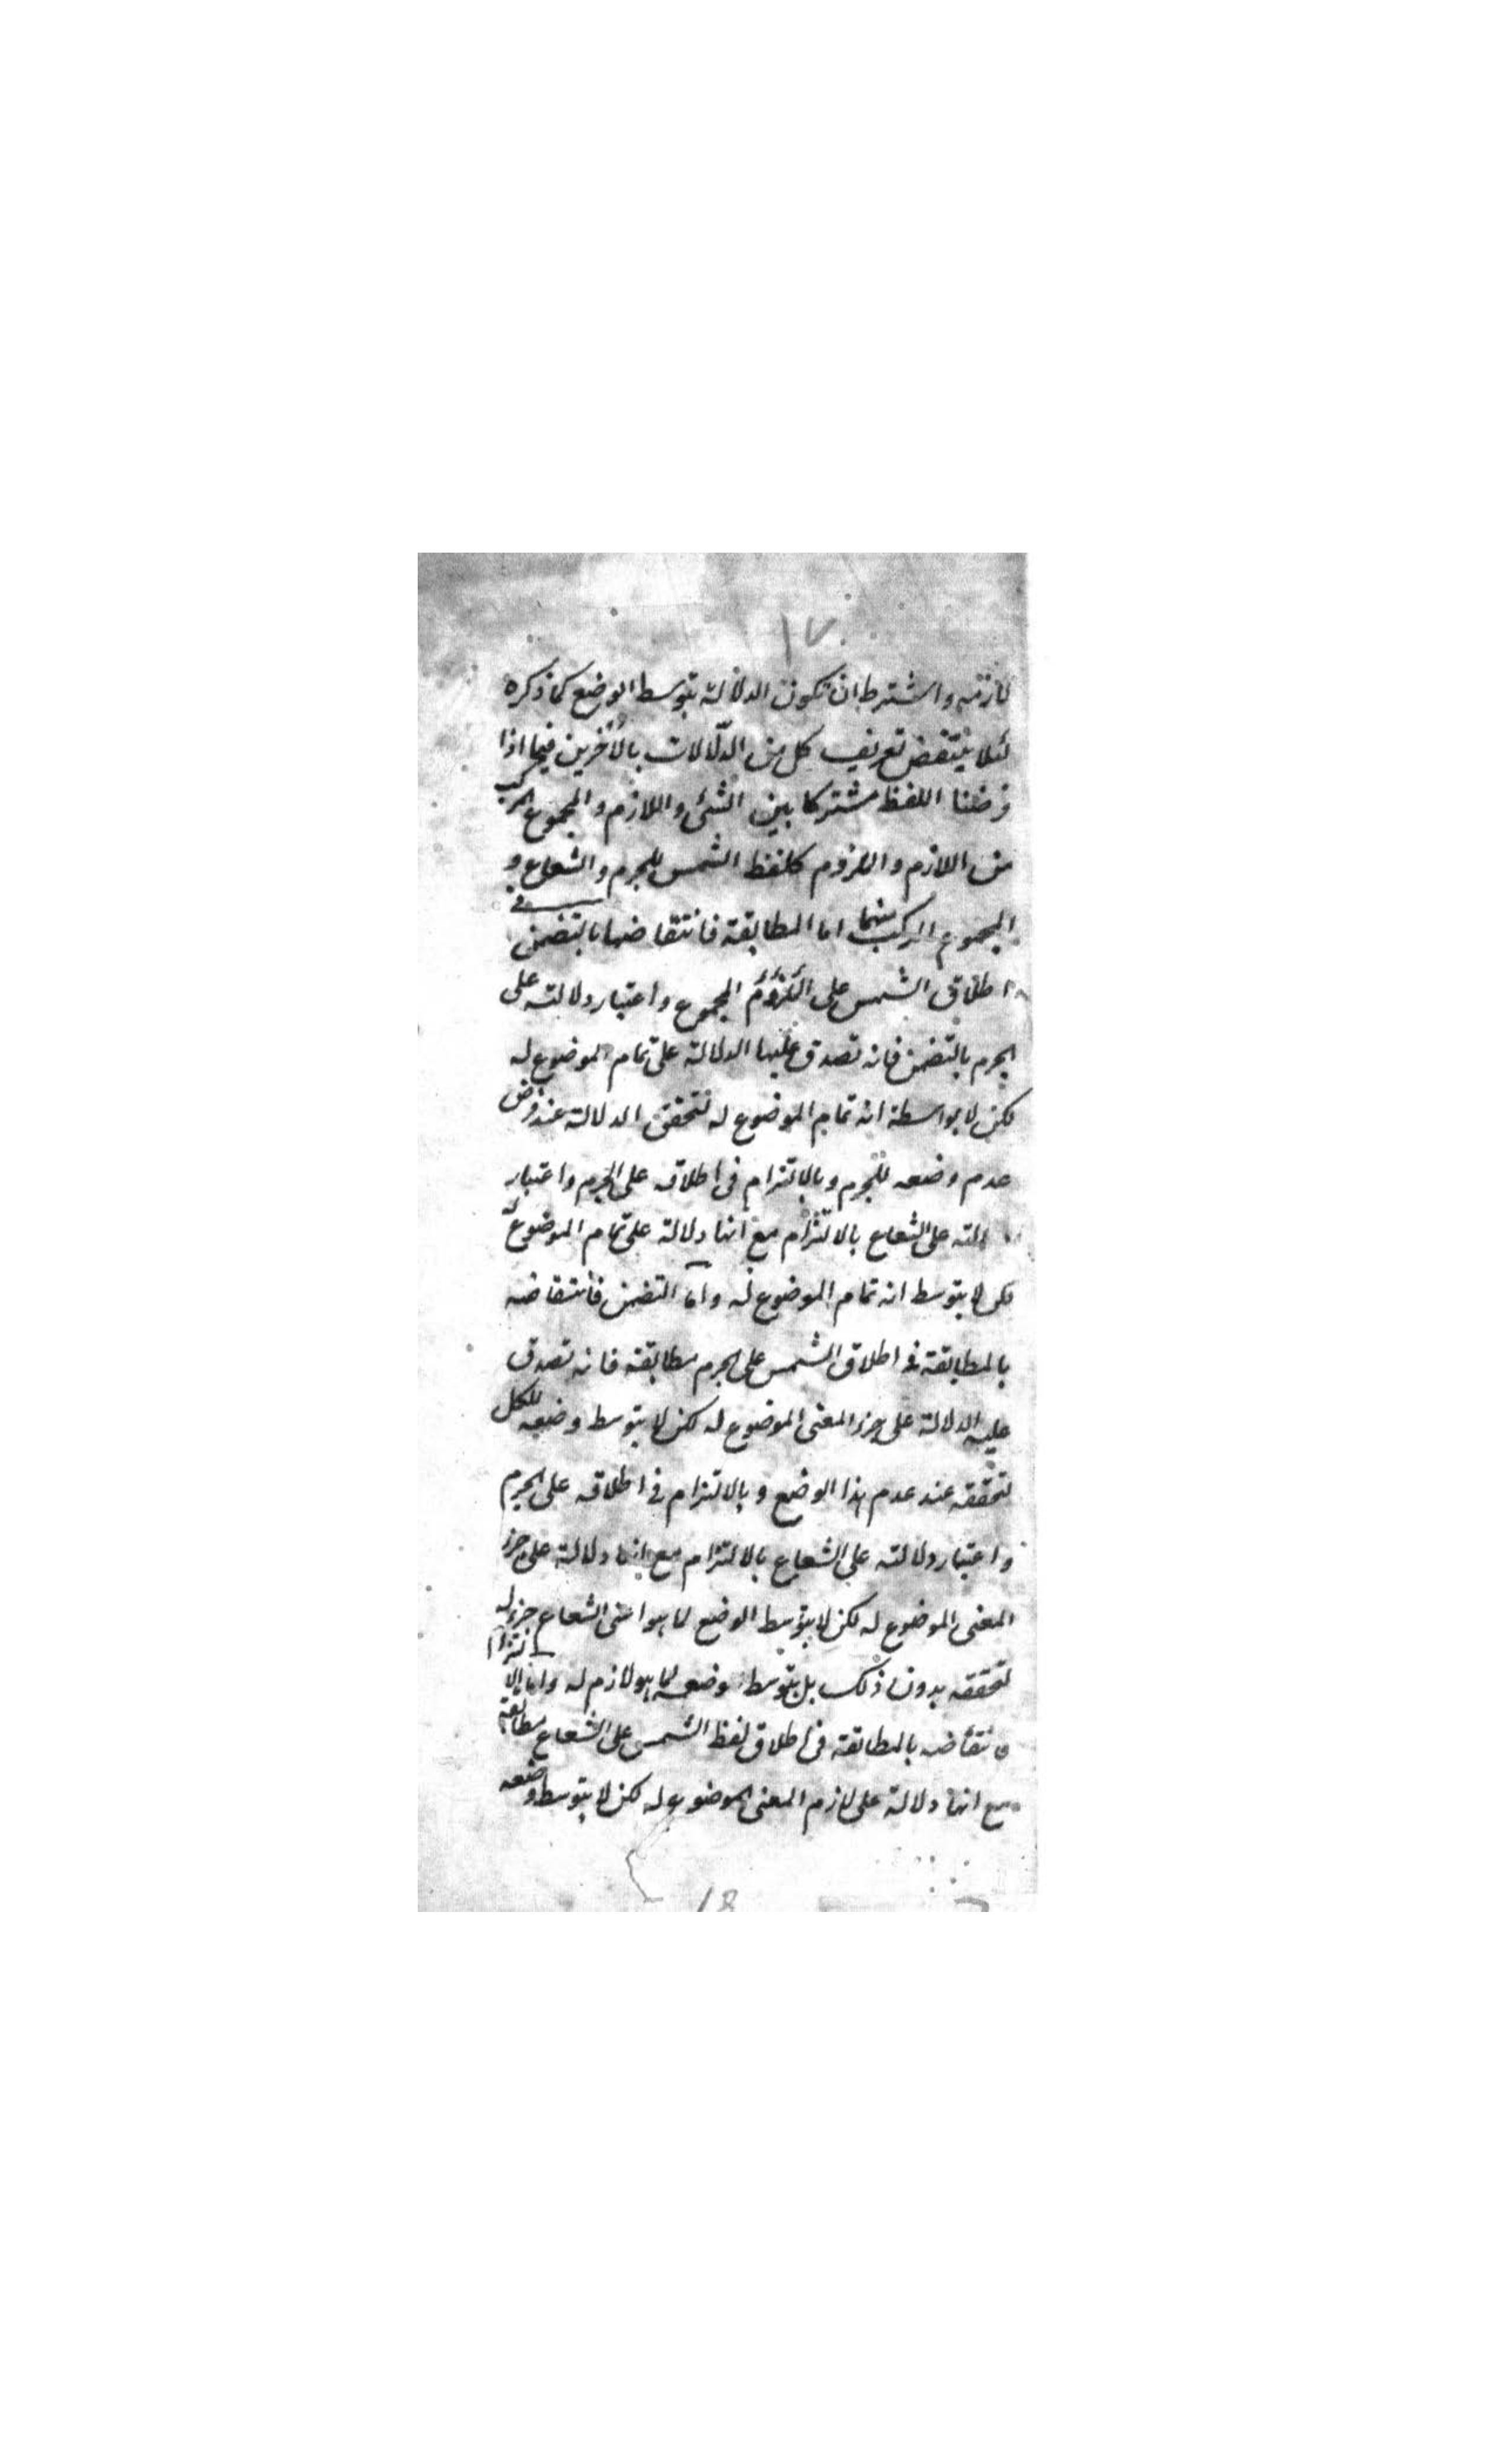 ١٧
لازمه واشترط ان تكون الدلالة بتوسط الوضع كما ذكره
لئلا ينتقض تعريف كل من الدلالات بالاخرين فيما اذا
فرضنا اللفظ مشتركا بين الشئ واللازم والمجموع المركب
من اللازم والملزوم كلفظ الشمس للجرم والشعاع و
المجموع المركب منهما اما المطابقة فانتقاضها بالتضمن في
اطلاق الشمس على المجموع واعتبار دلالته على
الجرم بالتضمن فانه تصدق عليها الدلالة على تمام الموضوع له
لكن لا بواسطة انه تمام الموضوع له لتحقق الدلالة عند فرض
عدم وضعه للجرم وبالالتزام في اطلاقه على الجرم واعتبار
دلالته على الشعاع بالالتزام مع انها دلالة على تمام الموضوع له
لكن لا بتوسط انه تمام الموضوع له واما التضمن فانتقاضه
بالمطابقة في اطلاق الشمس على الجرم مطابقة فانه تصدق
عليه الدلالة على جزء المعنى الموضوع له لكن لا بتوسط وضعه للكل
لتحققه عند عدم هذا الوضع وبالالتزام في اطلاقه على الجرم
واعتبار دلالته على الشعاع بالالتزام مع انها دلالة على جزء
المعنى الموضوع له لكن لا بتوسط الوضع لما هو اعنى الشعاع جزء له
لتحققه بدون ذلك بل بتوسط وضعه لما هو لازم له واما الالتزام
فانتقاضه بالمطابقة في اطلاق لفظ الشمس على الشعاع مطابقة
مع انها دلالة على لازم المعنى الموضوع له لكن لا بتوسط وضعه
18